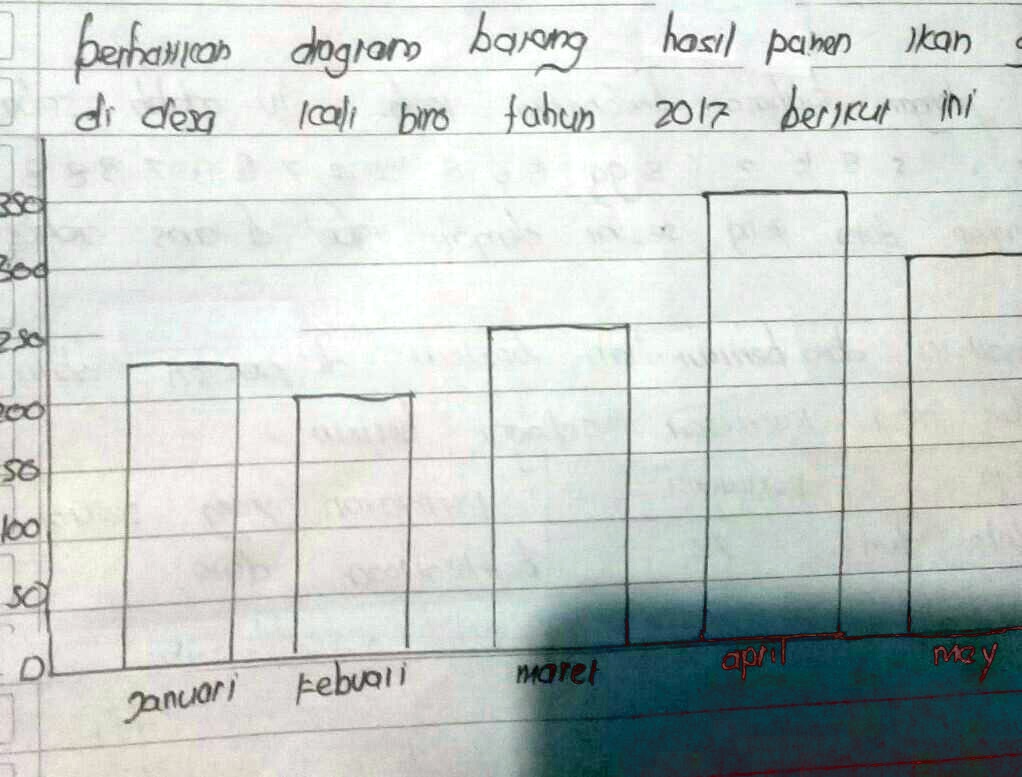 perhatikan diagram batang hasil panen ikan
di desa kali biro tahun 2017 berikut ini
350
300
250
200
50
100
50
0
Januari Febuari maret april may